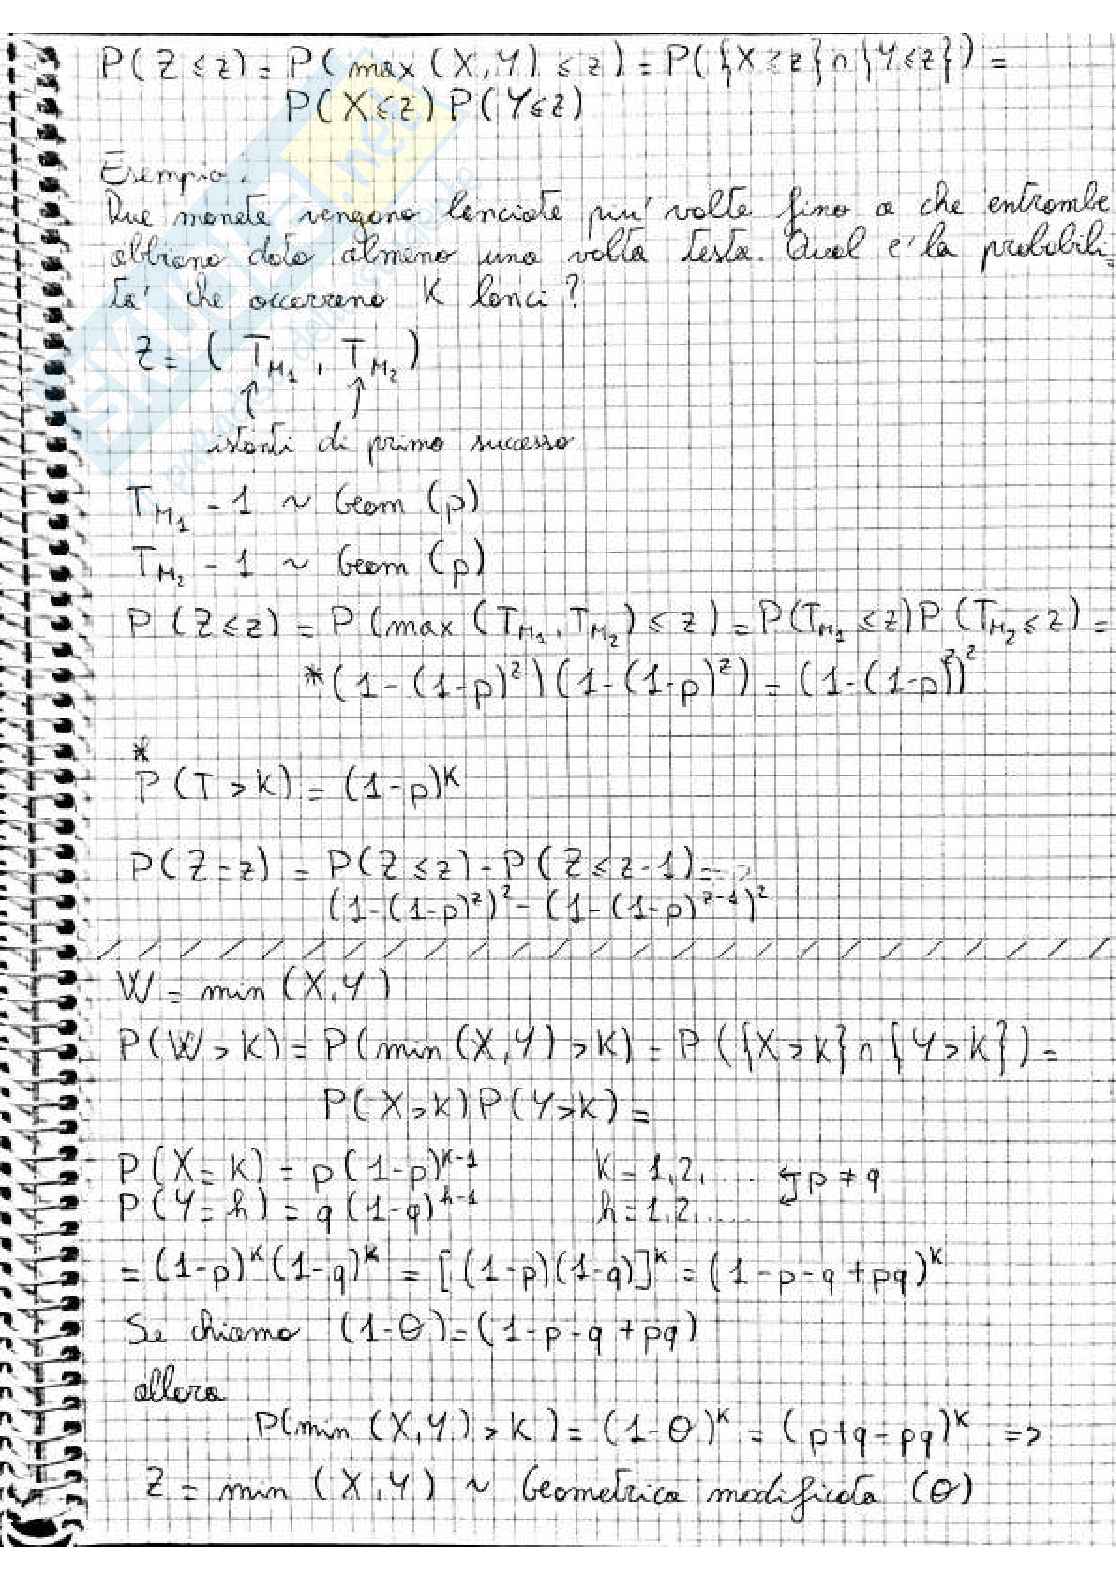 P(Z≤z) = P(max(X,Y) ≤z) = P({X≤z}∩{Y≤z}) =
P(X≤z) P(Y≤z)
Esempio:
Due monete vengono lanciate piu' volte fino a che entrambe
abbiano dato almeno una volta testa. Qual e' la probabili-
ta' che occorrano K lanci?
Z = ( T_M₁ , T_M₂ )
↑ ↑
istanti di primo successo
T_M₁ - 1 ~ Geom (p)
T_M₂ - 1 ~ Geom (p)
P (Z≤z) = P (max (T_M₁, T_M₂) ≤ z) = P(T_M₁ ≤z) P (T_M₂ ≤z) =
*(1-(1-p)^z) (1-(1-p)^z) = (1-(1-p)^z)²
*
P (T > K) = (1-p)^K
P(Z=z) = P(Z≤z) - P(Z≤z-1) =
(1-(1-p)^z)² - (1-(1-p)^z-1)²
W = min (X,Y)
P(W>K) = P(min(X,Y) >K) = P ({X>K}∩{Y>K}) =
P(X>K) P(Y>K) =
P(X=K) = p(1-p)^K-1 K=1,2,.... p≠q
P(Y=h) = q(1-q)^h-1 h=1,2,....
= (1-p)^K (1-q)^K = [(1-p)(1-q)]^K = (1-p-q+pq)^K
Se chiamo (1-θ) = (1-p-q+pq)
allora
P(min (X,Y) > K) = (1-θ)^K = (p+q-pq)^K =>
Z = min (X,Y) ~ Geometrica modificata (θ)